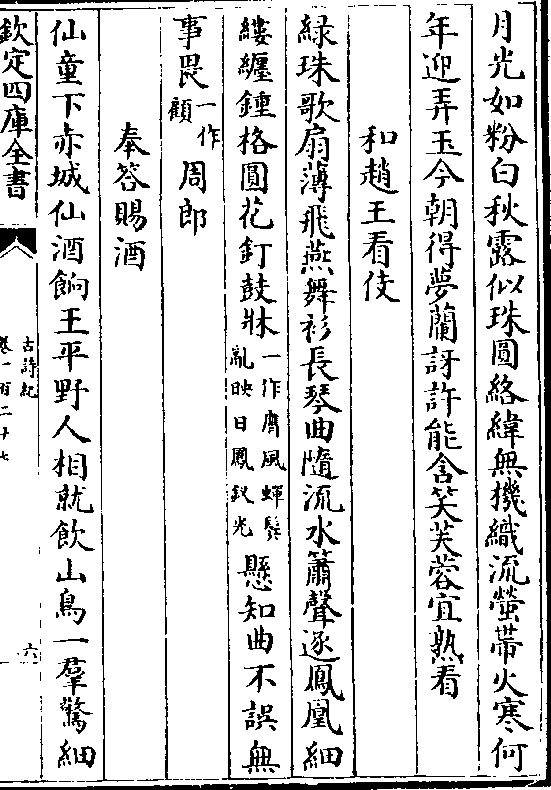 月光如粉白秋露似珠圓絡緯無機織流螢帶火寒何
年迎弄玉今朝得夢蘭訝許能含笑芙蓉宜熟看
和趙王看伎
緑珠歌扇薄飛燕舞衫長琴曲隨流水簫聲逐鳳凰細
縷纒鍾格圓花釘鼓牀一作膺風蟬鬂亂映日鳳釵光懸知曲不誤無
事畏一作顧周郎
奉答賜酒
仙童下赤城仙酒餉王平野人相就飲山鳥一羣驚細
欽定四庫全書
古詩紀
卷一百二十七
六